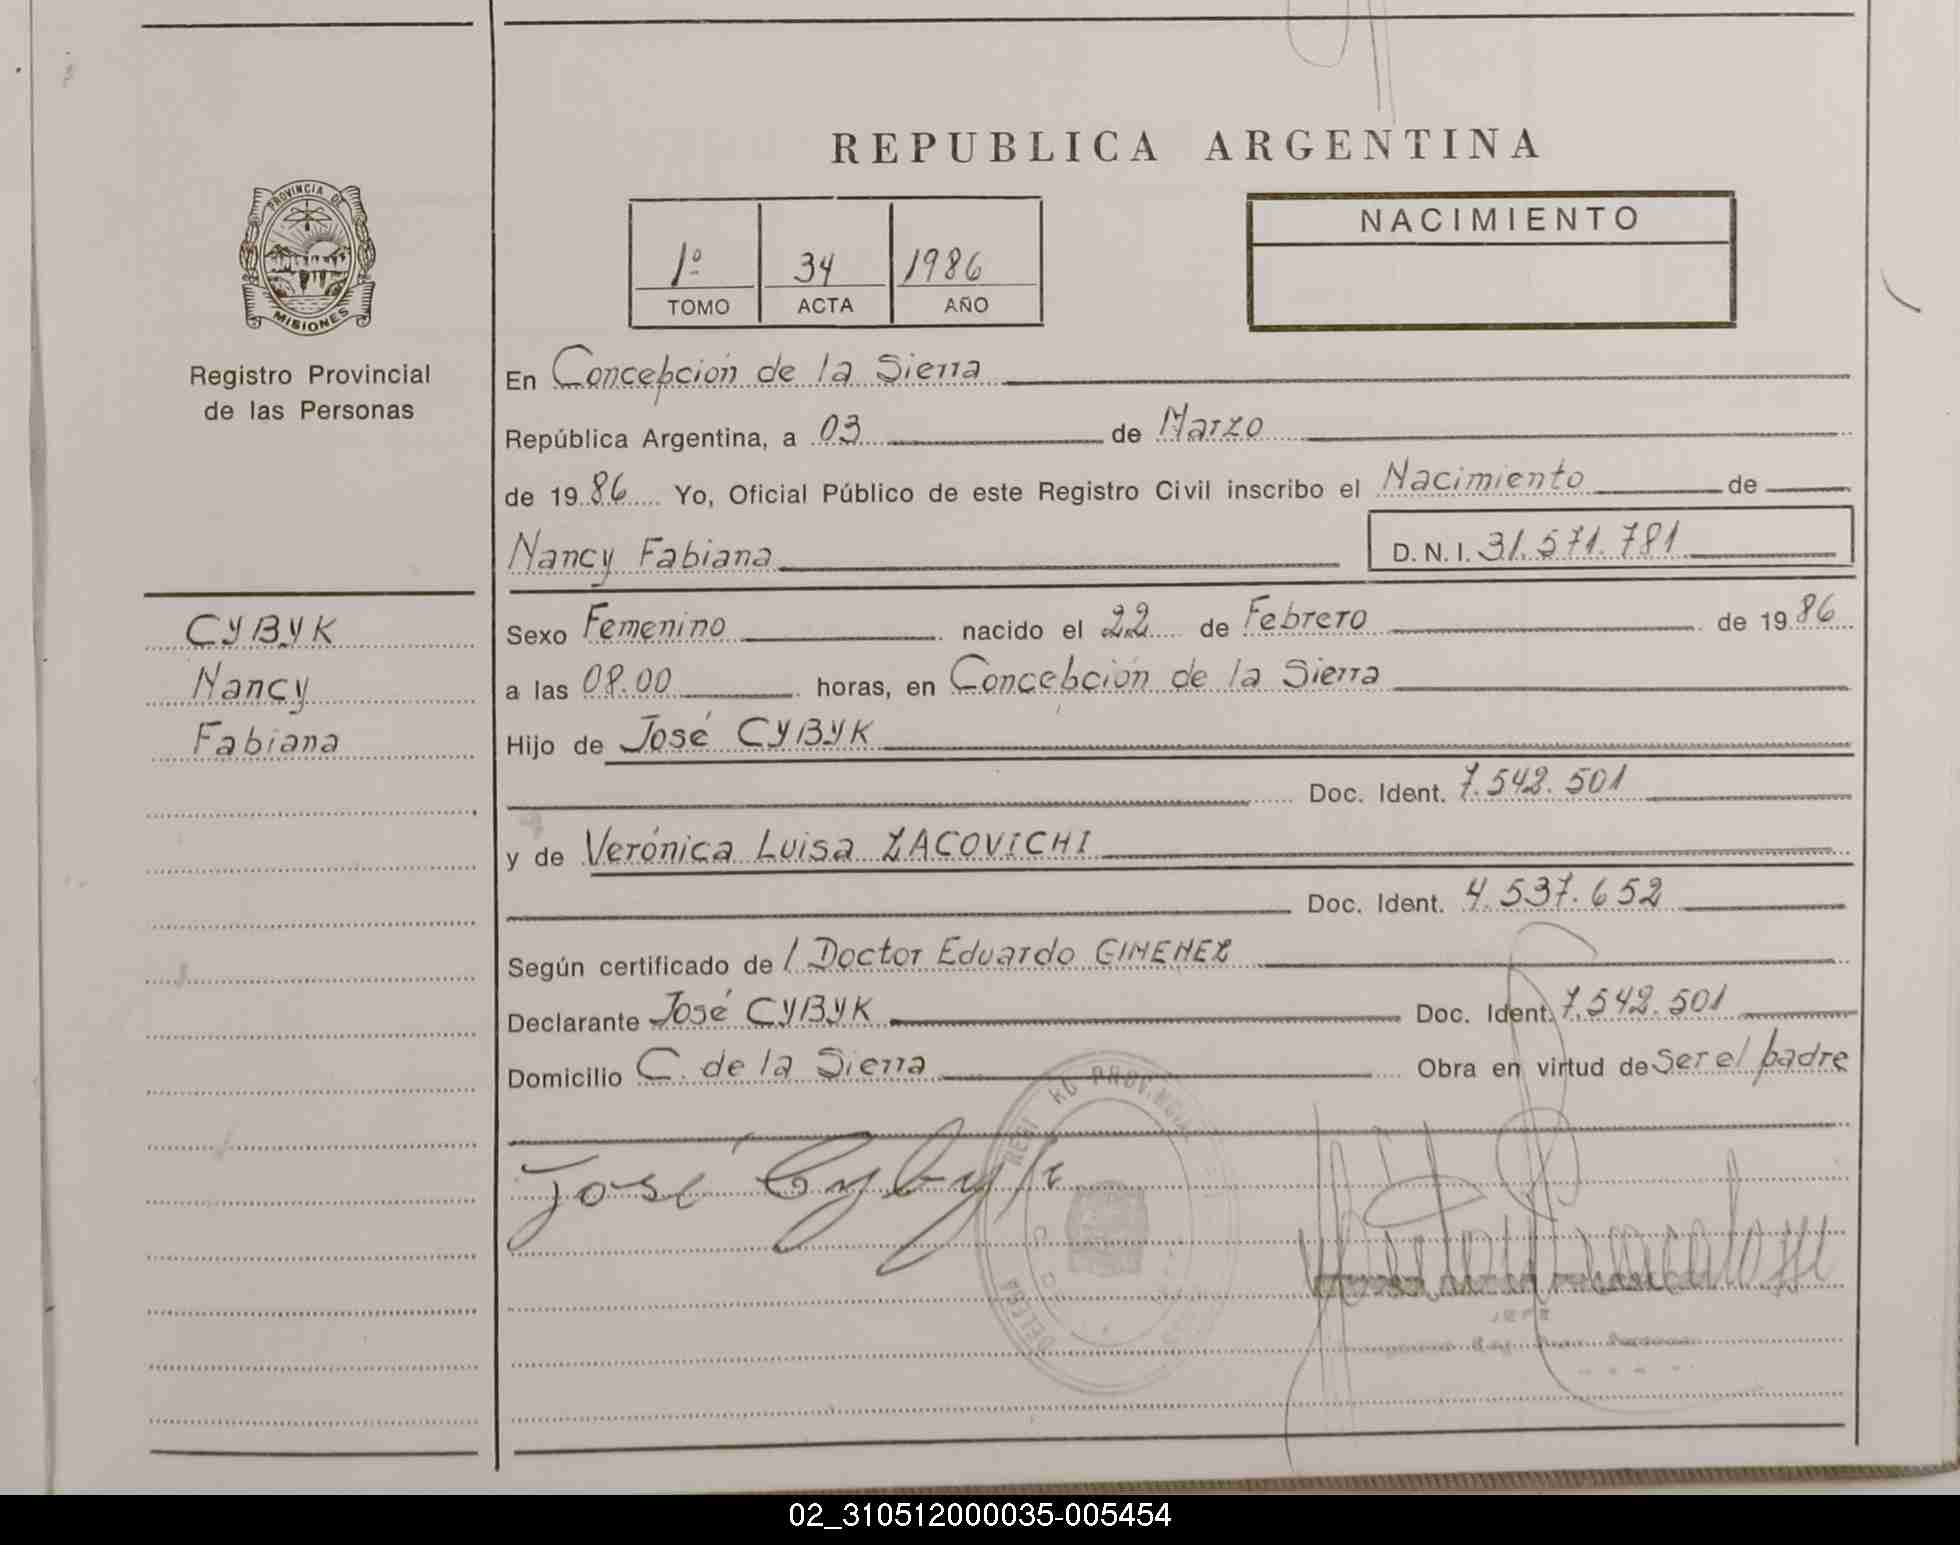 REPUBLICA ARGENTINA
PROVINCIA DE
MISIONES
Registro Provincial
de las Personas
1º 34 1986
TOMO ACTA AÑO
NACIMIENTO
En Concepción de la Sierra
República Argentina, a 03 de Marzo
de 1986 Yo, Oficial Público de este Registro Civil inscribo el Nacimiento de
Nancy Fabiana D.N.I. 31.571.781
CYBYK
Nancy
Fabiana
Sexo Femenino nacido el 22 de Febrero de 1986
a las 08.00 horas, en Concepción de la Sierra
Hijo de José CYBYK
Doc. Ident. 7.542.501
y de Verónica Luisa ZACOVICHI
Doc. Ident. 4.537.652
Según certificado de / Doctor Eduardo GIMENEZ
Declarante José CYBYK Doc. Ident. 7.542.501
Domicilio C. de la Sierra Obra en virtud de Ser el padre
José Cybyk
JEFE
02_310512000035-005454